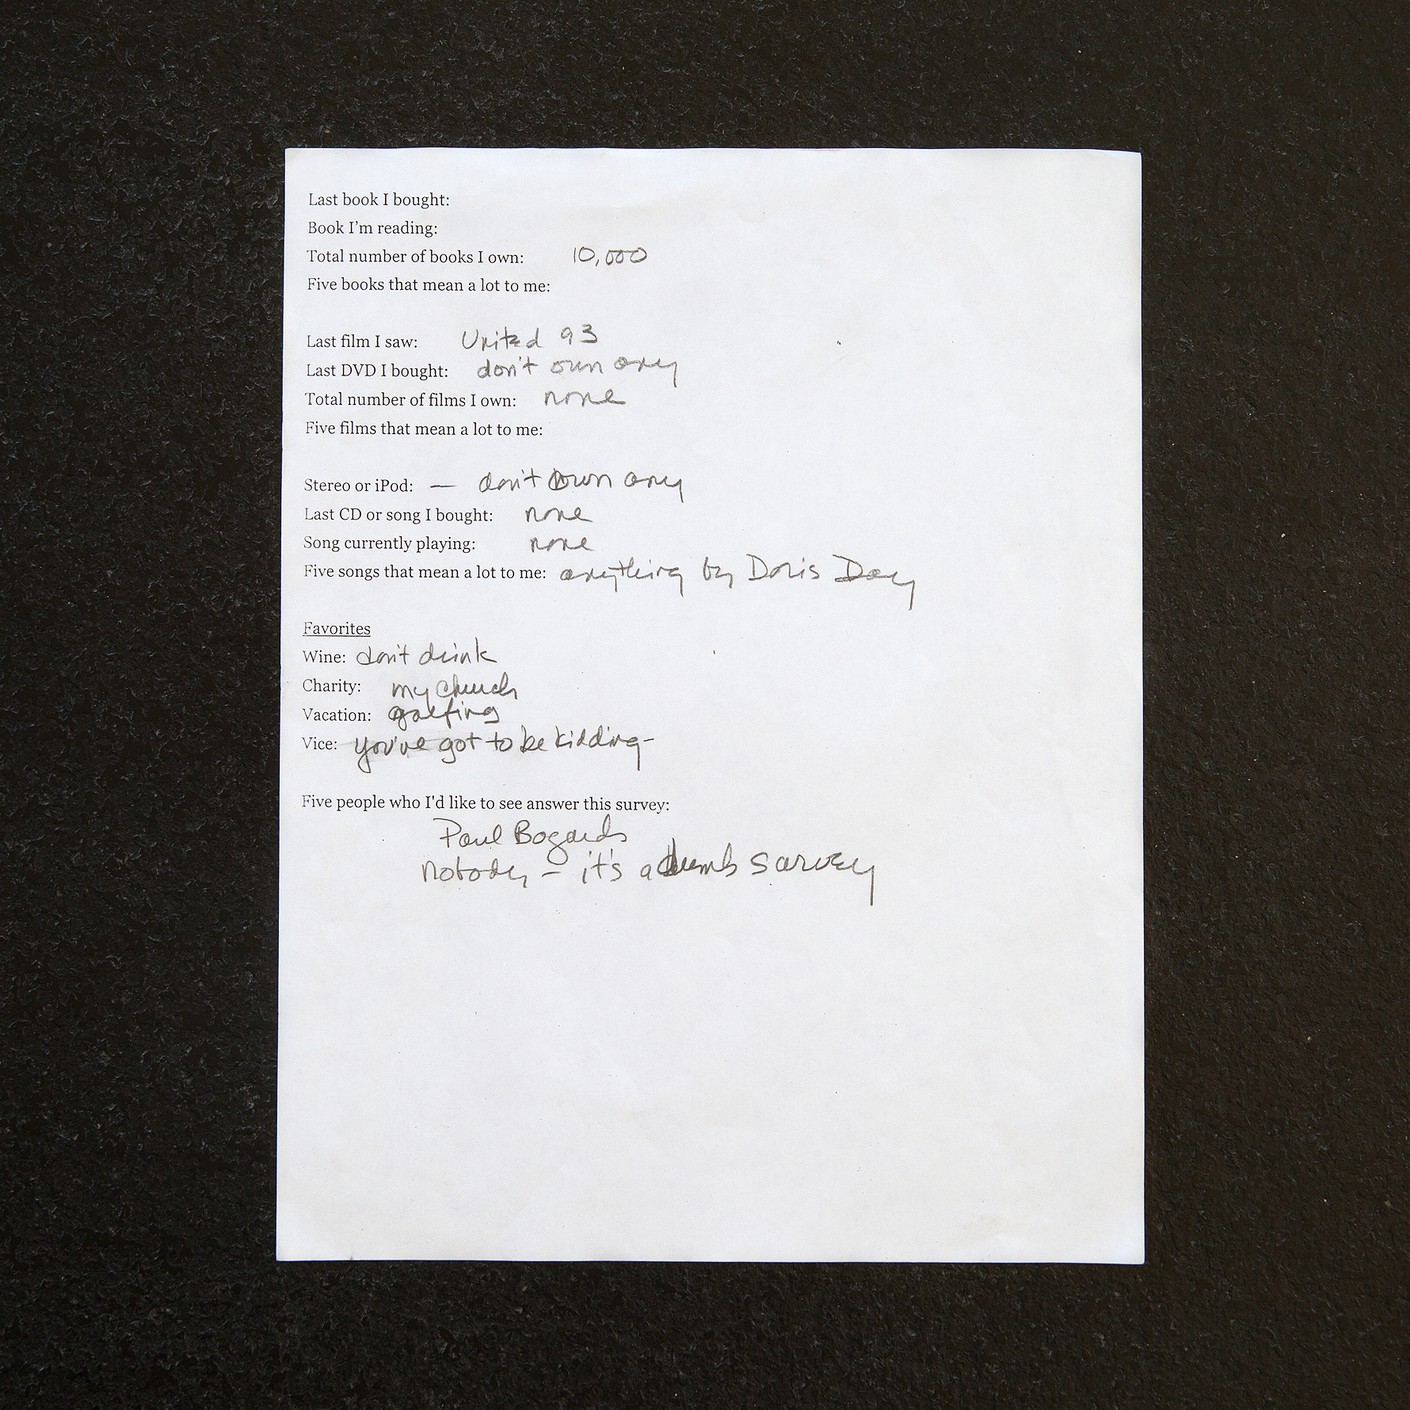 Last book I bought:
Book I'm reading:
Total number of books I own: 10,000
Five books that mean a lot to me:
Last film I saw: United 93
Last DVD I bought: don't own any
Total number of films I own: none
Five films that mean a lot to me:
Stereo or iPod: — don't own any
Last CD or song I bought: none
Song currently playing: none
Five songs that mean a lot to me: anything by Doris Day
Favorites
Wine: don't drink
Charity: my church
Vacation: golfing
Vice: you've got to be kidding-
Five people who I'd like to see answer this survey:
Paul Bogards
nobody - it's a dumb survey